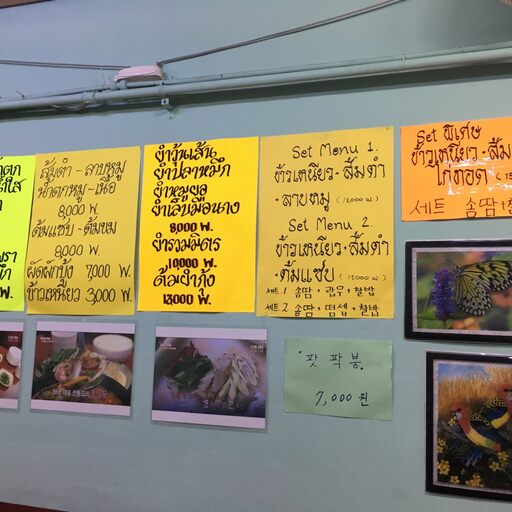 ส้มตำ - ลาบหมู
น้ำตกหมู - เนื้อ
8,000 w.
ต้มแซ่บ - ต้มขม
8,000 w.
ผัดผักบุ้ง 7,000 w.
ข้าวเหนียว 3,000 w.
ยำวุ้นเส้น
ยำปลาหมึก
ยำหมูยอ
ยำเล็บมือนาง
8000 w.
ยำรวมมิตร
10000 w.
ต้มยำกุ้ง
13000 w.
Set Menu 1.
ข้าวเหนียว + ส้มตำ
+ ลาบหมู (15000 w.)
Set Menu 2.
ข้าวเหนียว + ส้มตำ
+ ต้มแซ่บ (15000 w.)
세트.1 솜땀 + 랍무 + 찰밥
세트.2 솜땀 + 떰셉 + 찰밥
Set พิเศษ
ข้าวเหนียว + ส้ม
ไก่ทอด (15000 w.)
세트 솜땀 + 찰
팟 팍붕
7,000원